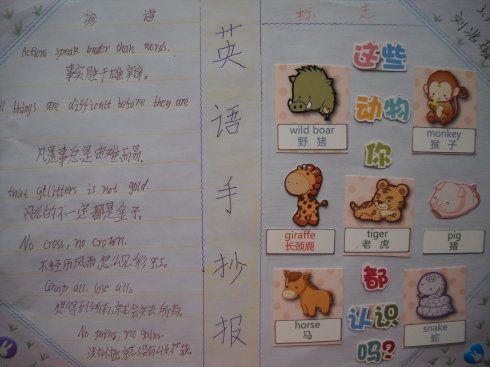 谚 语
Actions speak louder than words.
事实胜于雄辩。
ll things are difficult before they are
凡是总是由难而易。
that glitters is not gold.
闪光的不一定都是金子。
No cross, no crown.
不经历风雨,怎么见彩虹。
Grasp all, lose all.
想得到所有,就会失去所有。
No pains, no gains.
英
语
手
抄
报
标 志
这些
动物
你
都
认识
吗?
wild boar
野 猪
monkey
猴 子
giraffe
长颈鹿
tiger
老 虎
pig
猪
horse
马
snake
蛇